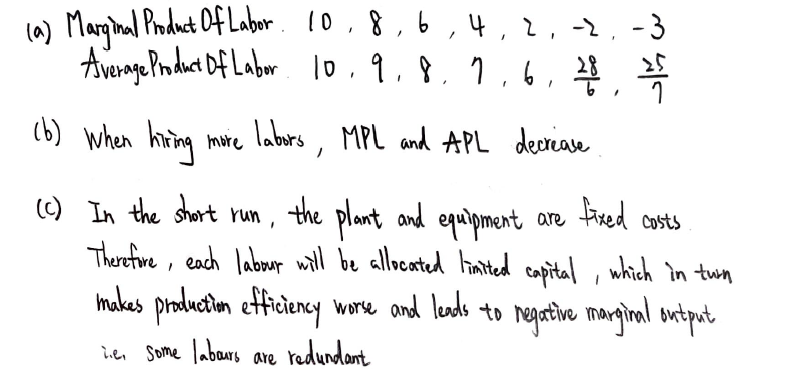 (a) Marginal Product Of Labor. 10, 8, 6, 4, 2, -2, -3
Average Product Of Labor 10, 9, 8, 7, 6, 28/6, 25/7
(b) When hiring more labors, MPL and APL decrease
(c) In the short run, the plant and equipment are fixed costs.
Therefore, each labour will be allocated limited capital, which in turn
makes production efficiency worse and leads to negative marginal output
i.e. some labours are redundant